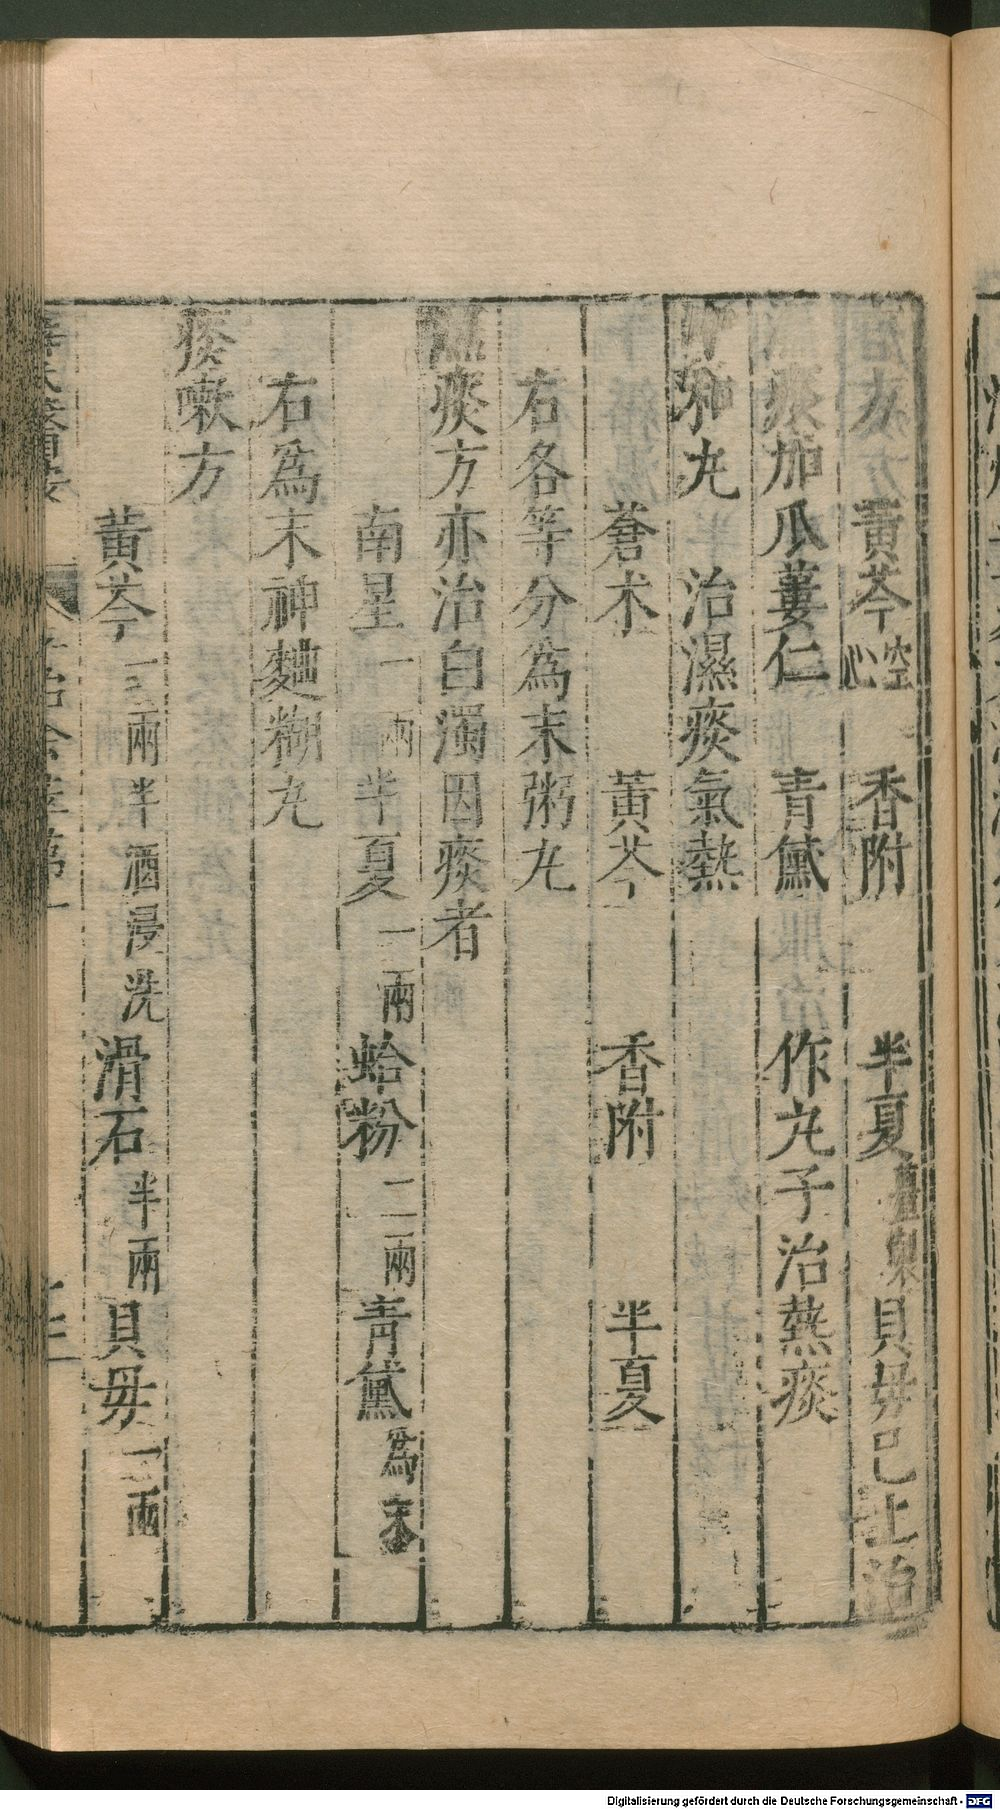 黃芩空心 香附 半夏薑製 貝母已上治
痰加瓜蔞仁 青黛 作丸子治熱痰
中和丸 治濕痰氣熱
蒼朮 黃芩 香附 半夏
右各等分爲末粥丸
痰方亦治白濁因痰者
南星一兩 半夏一兩 蛤粉二兩 青黛爲末
右爲末神麯糊丸
痰嗽方
黃芩一兩半酒浸洗 滑石半兩 貝母一兩
Digitalisierung gefördert durch die Deutsche Forschungsgemeinschaft - DFG